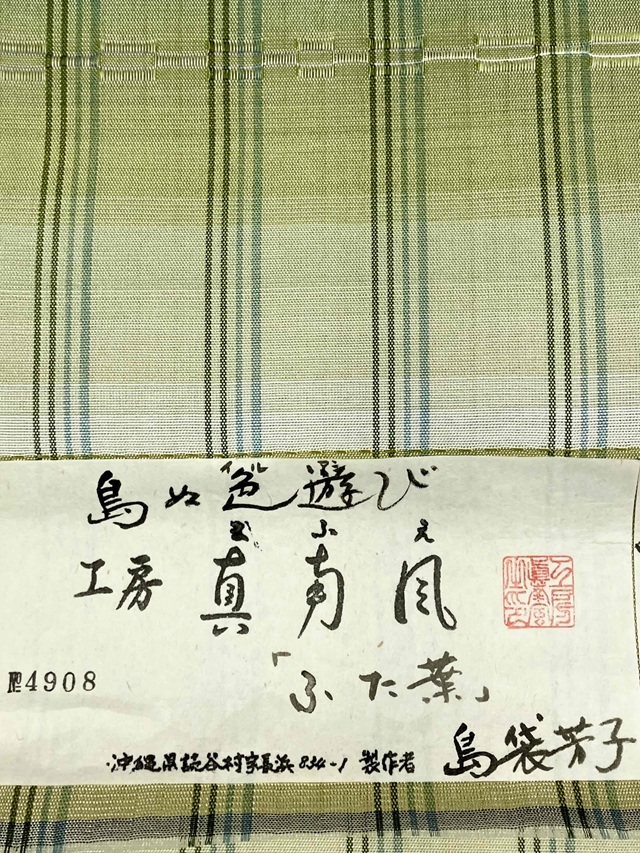 島ぬ色遊び
イル
工房 真南風
まふえ
「ふた葉」
4908
沖縄県読谷村字長浜834-1 製作者 島袋芳子